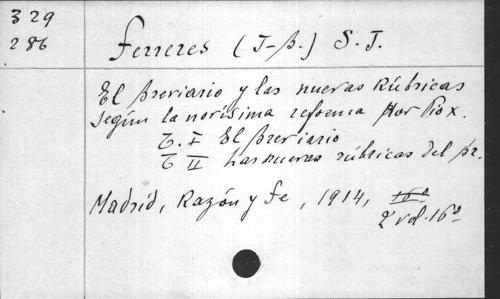 329
286
Ferreres (J-B.) S.J.
El Breviario y las nuevas Rúbricas
según la novísima reforma por Pio X.
T. I El Breviario
T II Las nuevas rúbricas del Br.
Madrid, Razón y Fe, 1914, 16º
2 vol. 16º